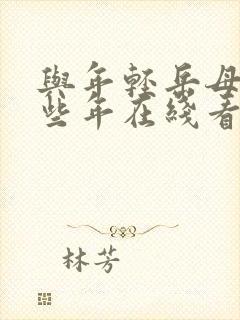 與年輕岳母
些年在綫看
林芳